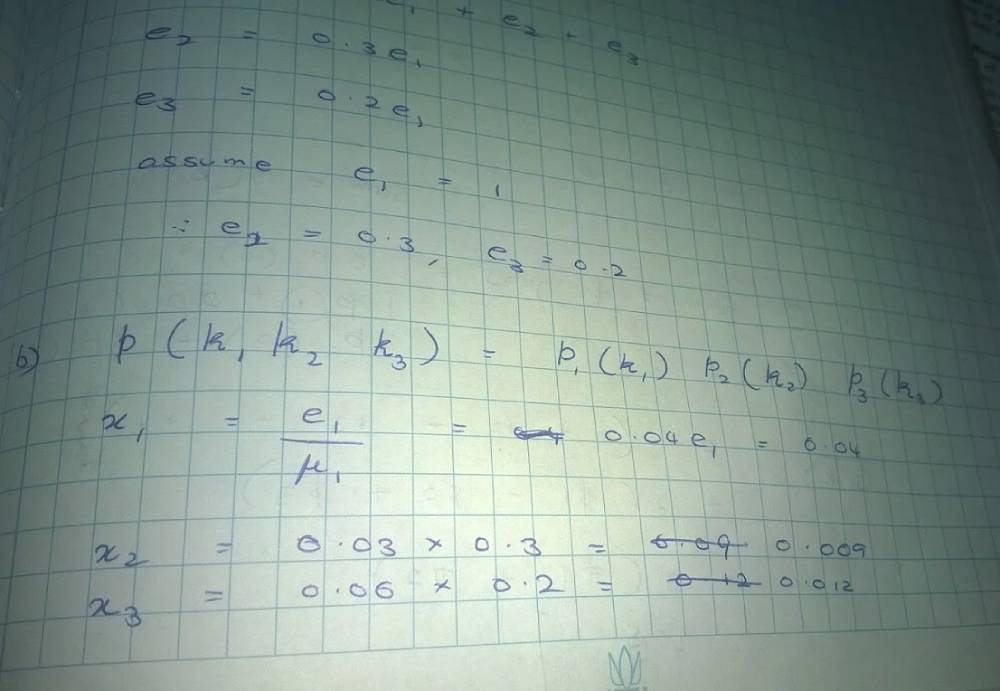 e₁ + e₂ + e₃
e₂ = 0.3e₁
e₃ = 0.2e₁
assume e₁ = 1
∵ e₂ = 0.3, e₃ = 0.2
b) p (k₁ k₂ k₃) = p₁(k₁) p₂(k₂) p₃(k₃)
x₁ = e₁/μ₁ = 0.04e₁ = 0.04
x₂ = 0.03 × 0.3 = 0.09 0.009
x₃ = 0.06 × 0.2 = 0.12 0.012